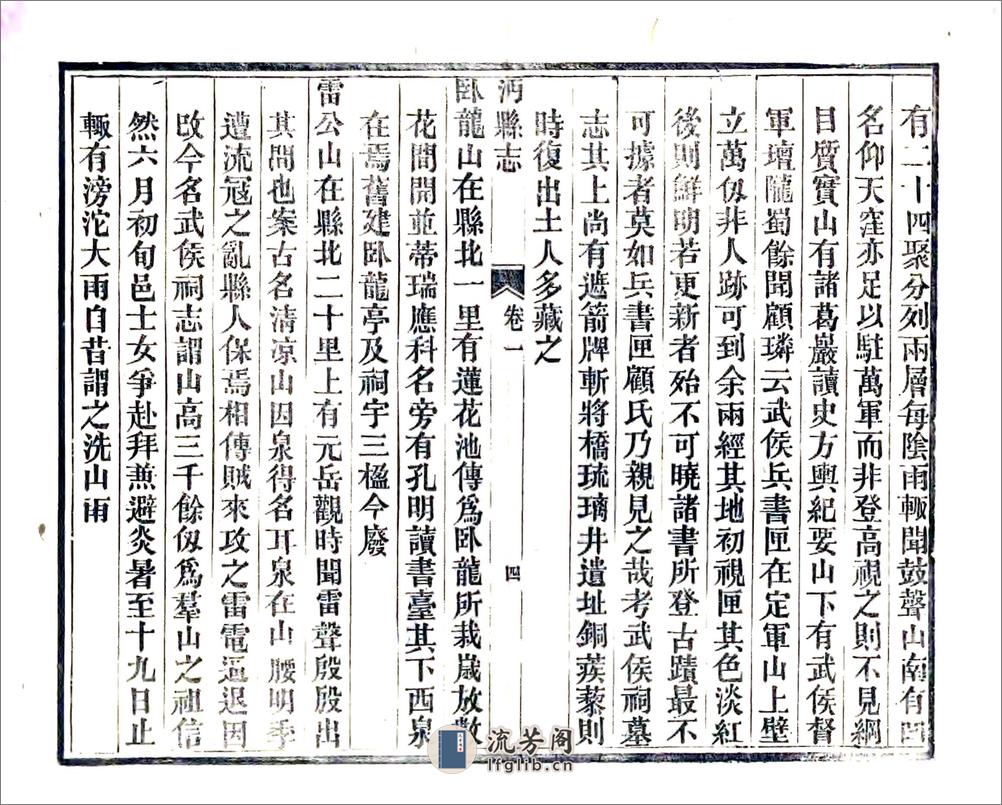 有二十四聚分列兩層每陰雨輒聞鼓聲山南有凹
名仰天窪亦足以駐萬軍而非登高視之則不見綱
目質實山有諸葛巖讀史方輿紀要山下有武侯督
軍壇隴蜀餘聞顧璘云武侯兵書匣在定軍山上壁
立萬仭非人跡可到余兩經其地初視匣其色淡紅
後則鮮明若更新者殆不可曉諸書所登古蹟最不
可據者莫如兵書匣顧氏乃親見之哉考武侯祠墓
志其上尚有遮箭牌斬將橋琉璃井遺址銅蒺藜則
時復出土人多藏之
沔縣志
卷一
四
卧龍山在縣北一里有蓮花池傳爲卧龍所栽嵗放數
花間開並蒂瑞應科名旁有孔明讀書臺其下西泉
在焉舊建卧龍亭及祠宇三楹今廢
雷公山在縣北二十里上有元岳觀時聞雷聲殷殷出
其間也案古名清凉山因泉得名耳泉在山腰明季
遭流冦之亂縣人保焉相傳賊來攻之雷電逼退因
改今名武侯祠志謂山高三千餘仭爲羣山之祖信
然六月初旬邑士女爭赴拜兼避炎暑至十九日止
輒有滂沱大雨自昔謂之洗山雨
流芳阁
lfglib.cn